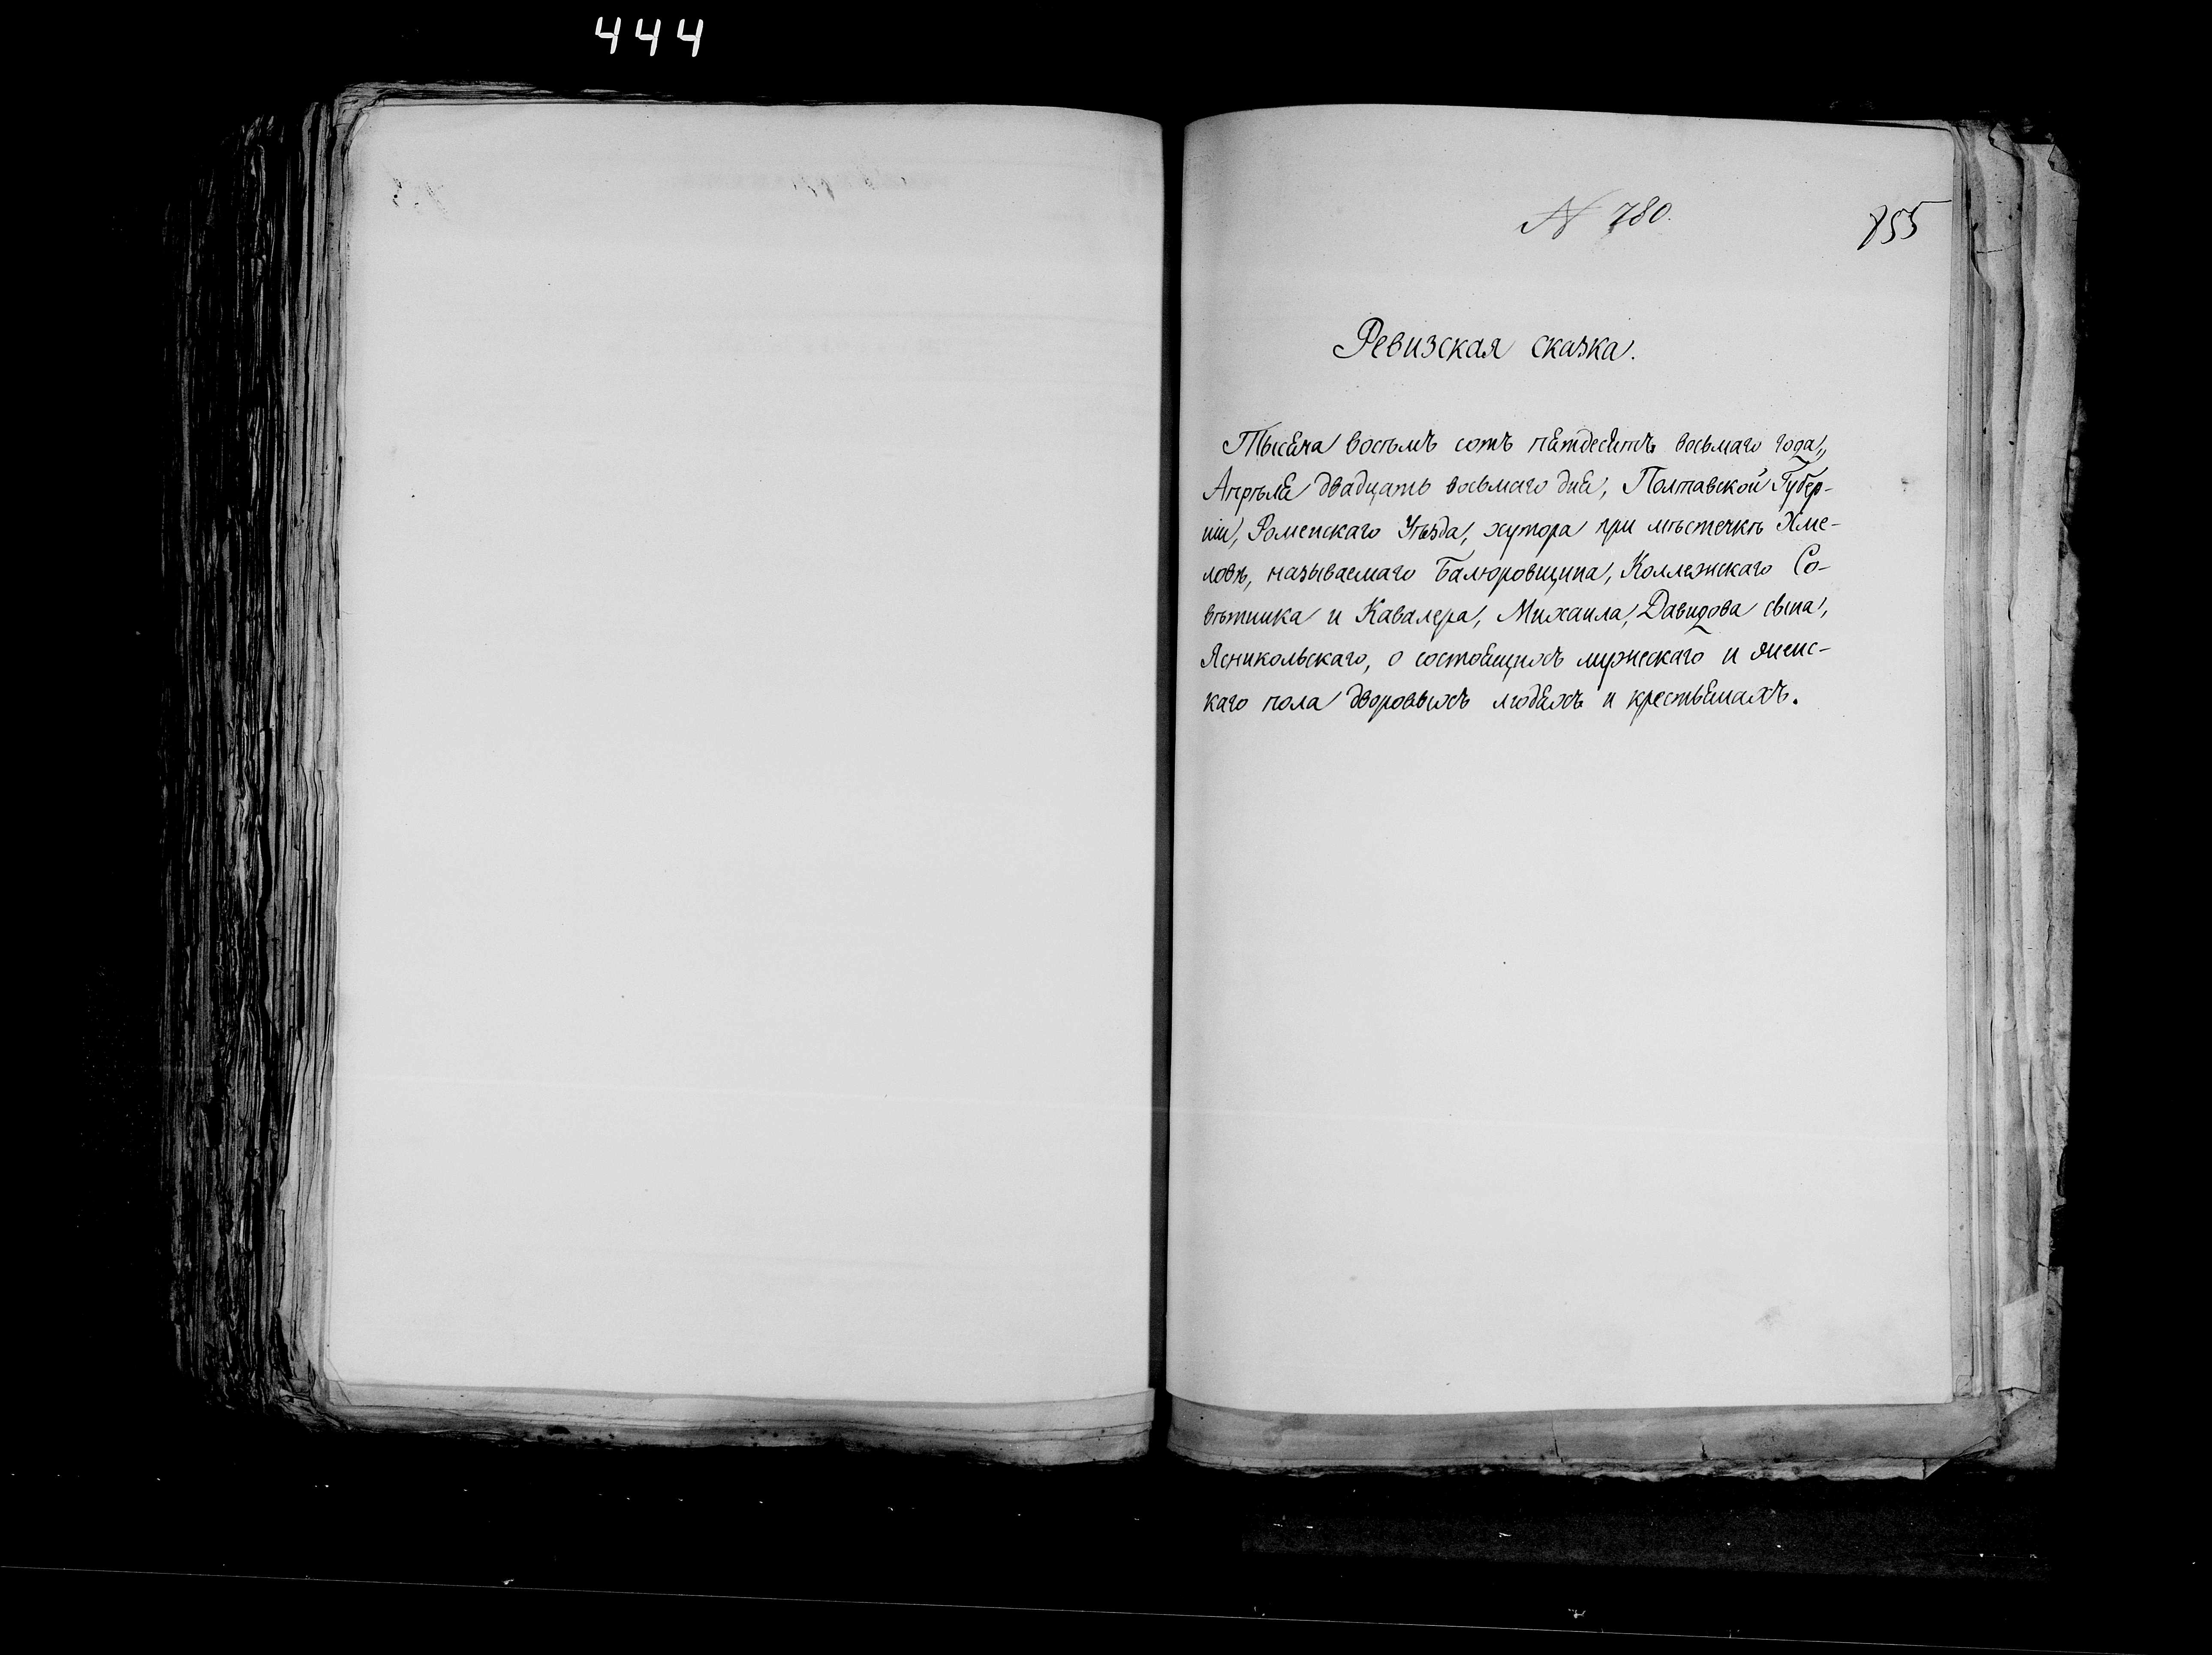 444
N 780.
855
Ревизская сказка.
Тысяча восемь сотъ пятдесятъ восьмаго года,
Апрѣля двадцать восьмаго дня, Полтавской Губер-
ніи, Роменскаго Уѣзда, хутора при мѣстечкѣ Хме-
ловѣ, называемаго Балюровщина, Коллежскаго Со-
вѣтника и Кавалера, Михаила, Давидова сына,
Ясникольскаго, о состоящихъ мужескаго и женс-
каго пола дворовыхъ людяхъ и крестьянахъ.